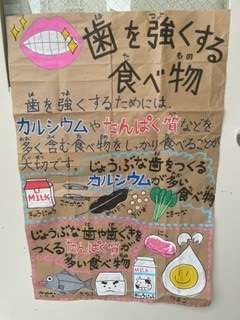 歯を強くする
食べ物
もの
歯を強くするためには、
カルシウムやたんぱく質などを
多く含む食べ物をしっかり食べることが
大切です。
じょうぶな歯をつくる
カルシウムが多い
食べ物
MILK
じょうぶな歯や歯ぐきを
つくるたんぱく質が
多い食べ物
MILK